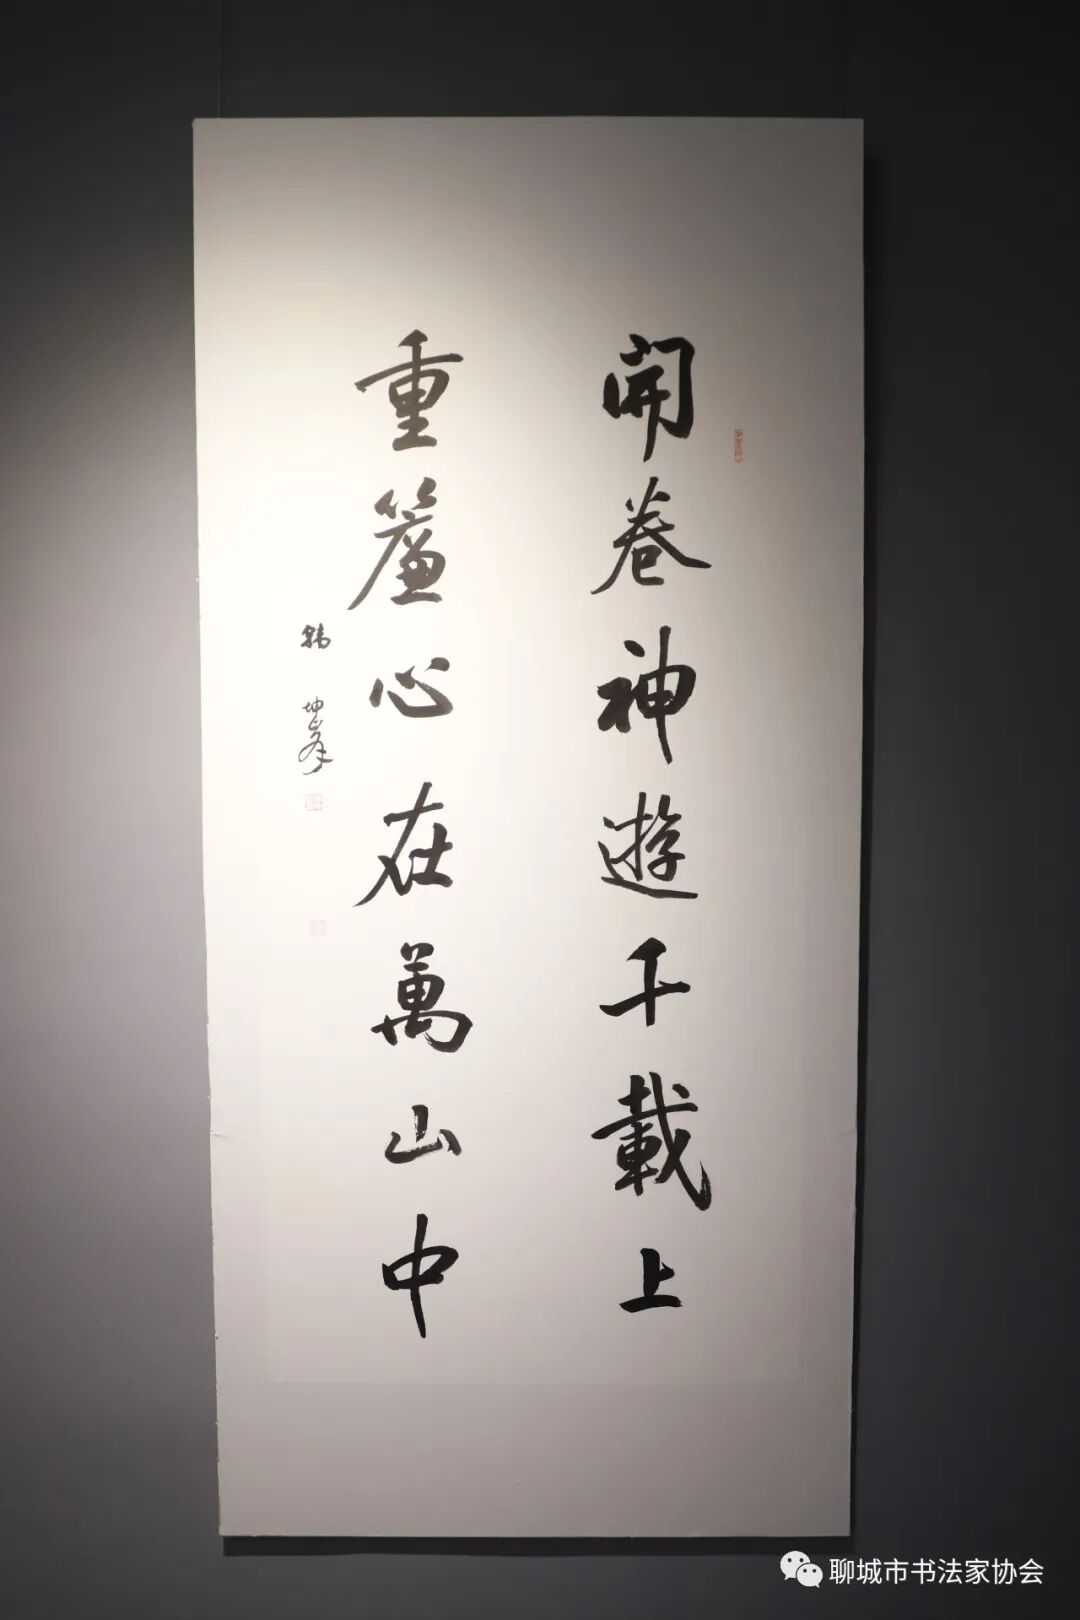 開卷神遊千載上
重簾心在萬山中
韩坤峯
聊城市书法家协会